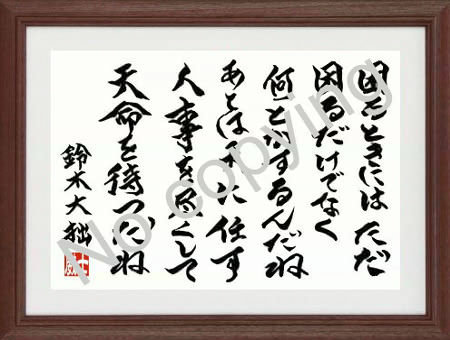 困るときにはただ
困るだけでなく
何とかするんだね
あとは天に任す
人事を尽くして
天命を待つだね
鈴木大拙
No copying